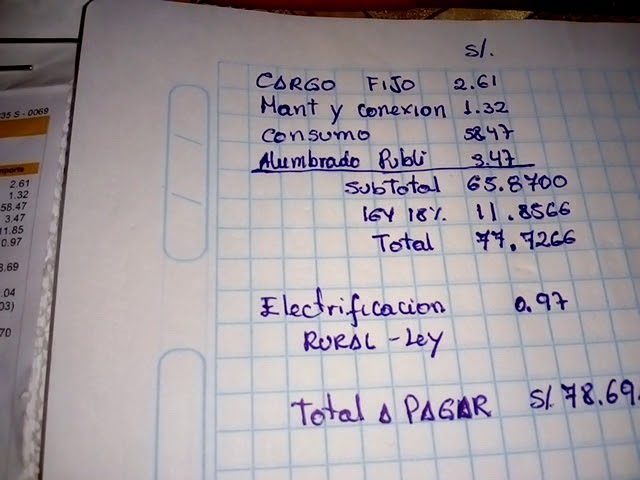 35 S - 0069
2.61
1.32
58.47
3.47
11.85
0.97
8.69
.04
03)
70
S/.
CARGO FIJO 2.61
Mant y conexion 1.32
consumo 5847
Alumbrado Publi 3.47
SubTotal 65.8700
IGV 18%. 11.8566
Total 77.7266
Electrificacion 0.97
RURAL - Ley
Total A PAGAR S/. 78.69